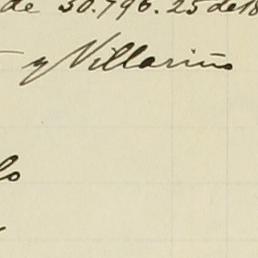 de 30.796.25 de 18
y Villarino
lo